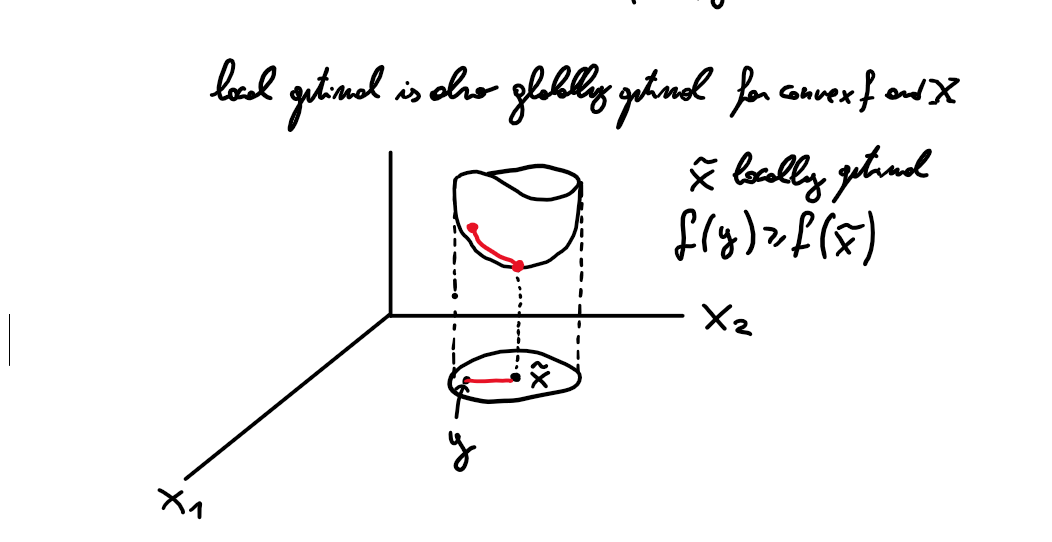 local optimal is also globally optimal for convex f and X
x̃ locally optimal
f(y) ≥ f(x̃)
X₂
x̃
y
X₁